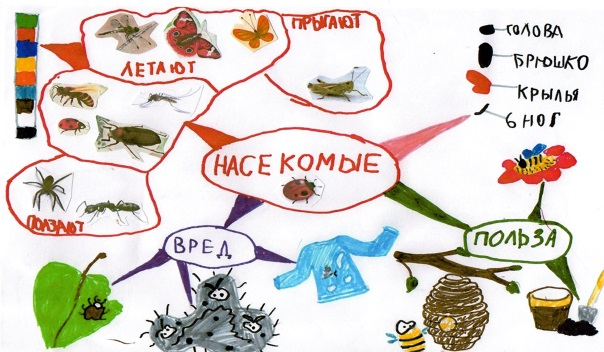 ЛЕТАЮТ
ПРЫГАЮТ
ГОЛОВА
БРЮШКО
КРЫЛЬЯ
6 НОГ
НАСЕКОМЫЕ
ПОЛЗАЮТ
ВРЕД
ПОЛЬЗА